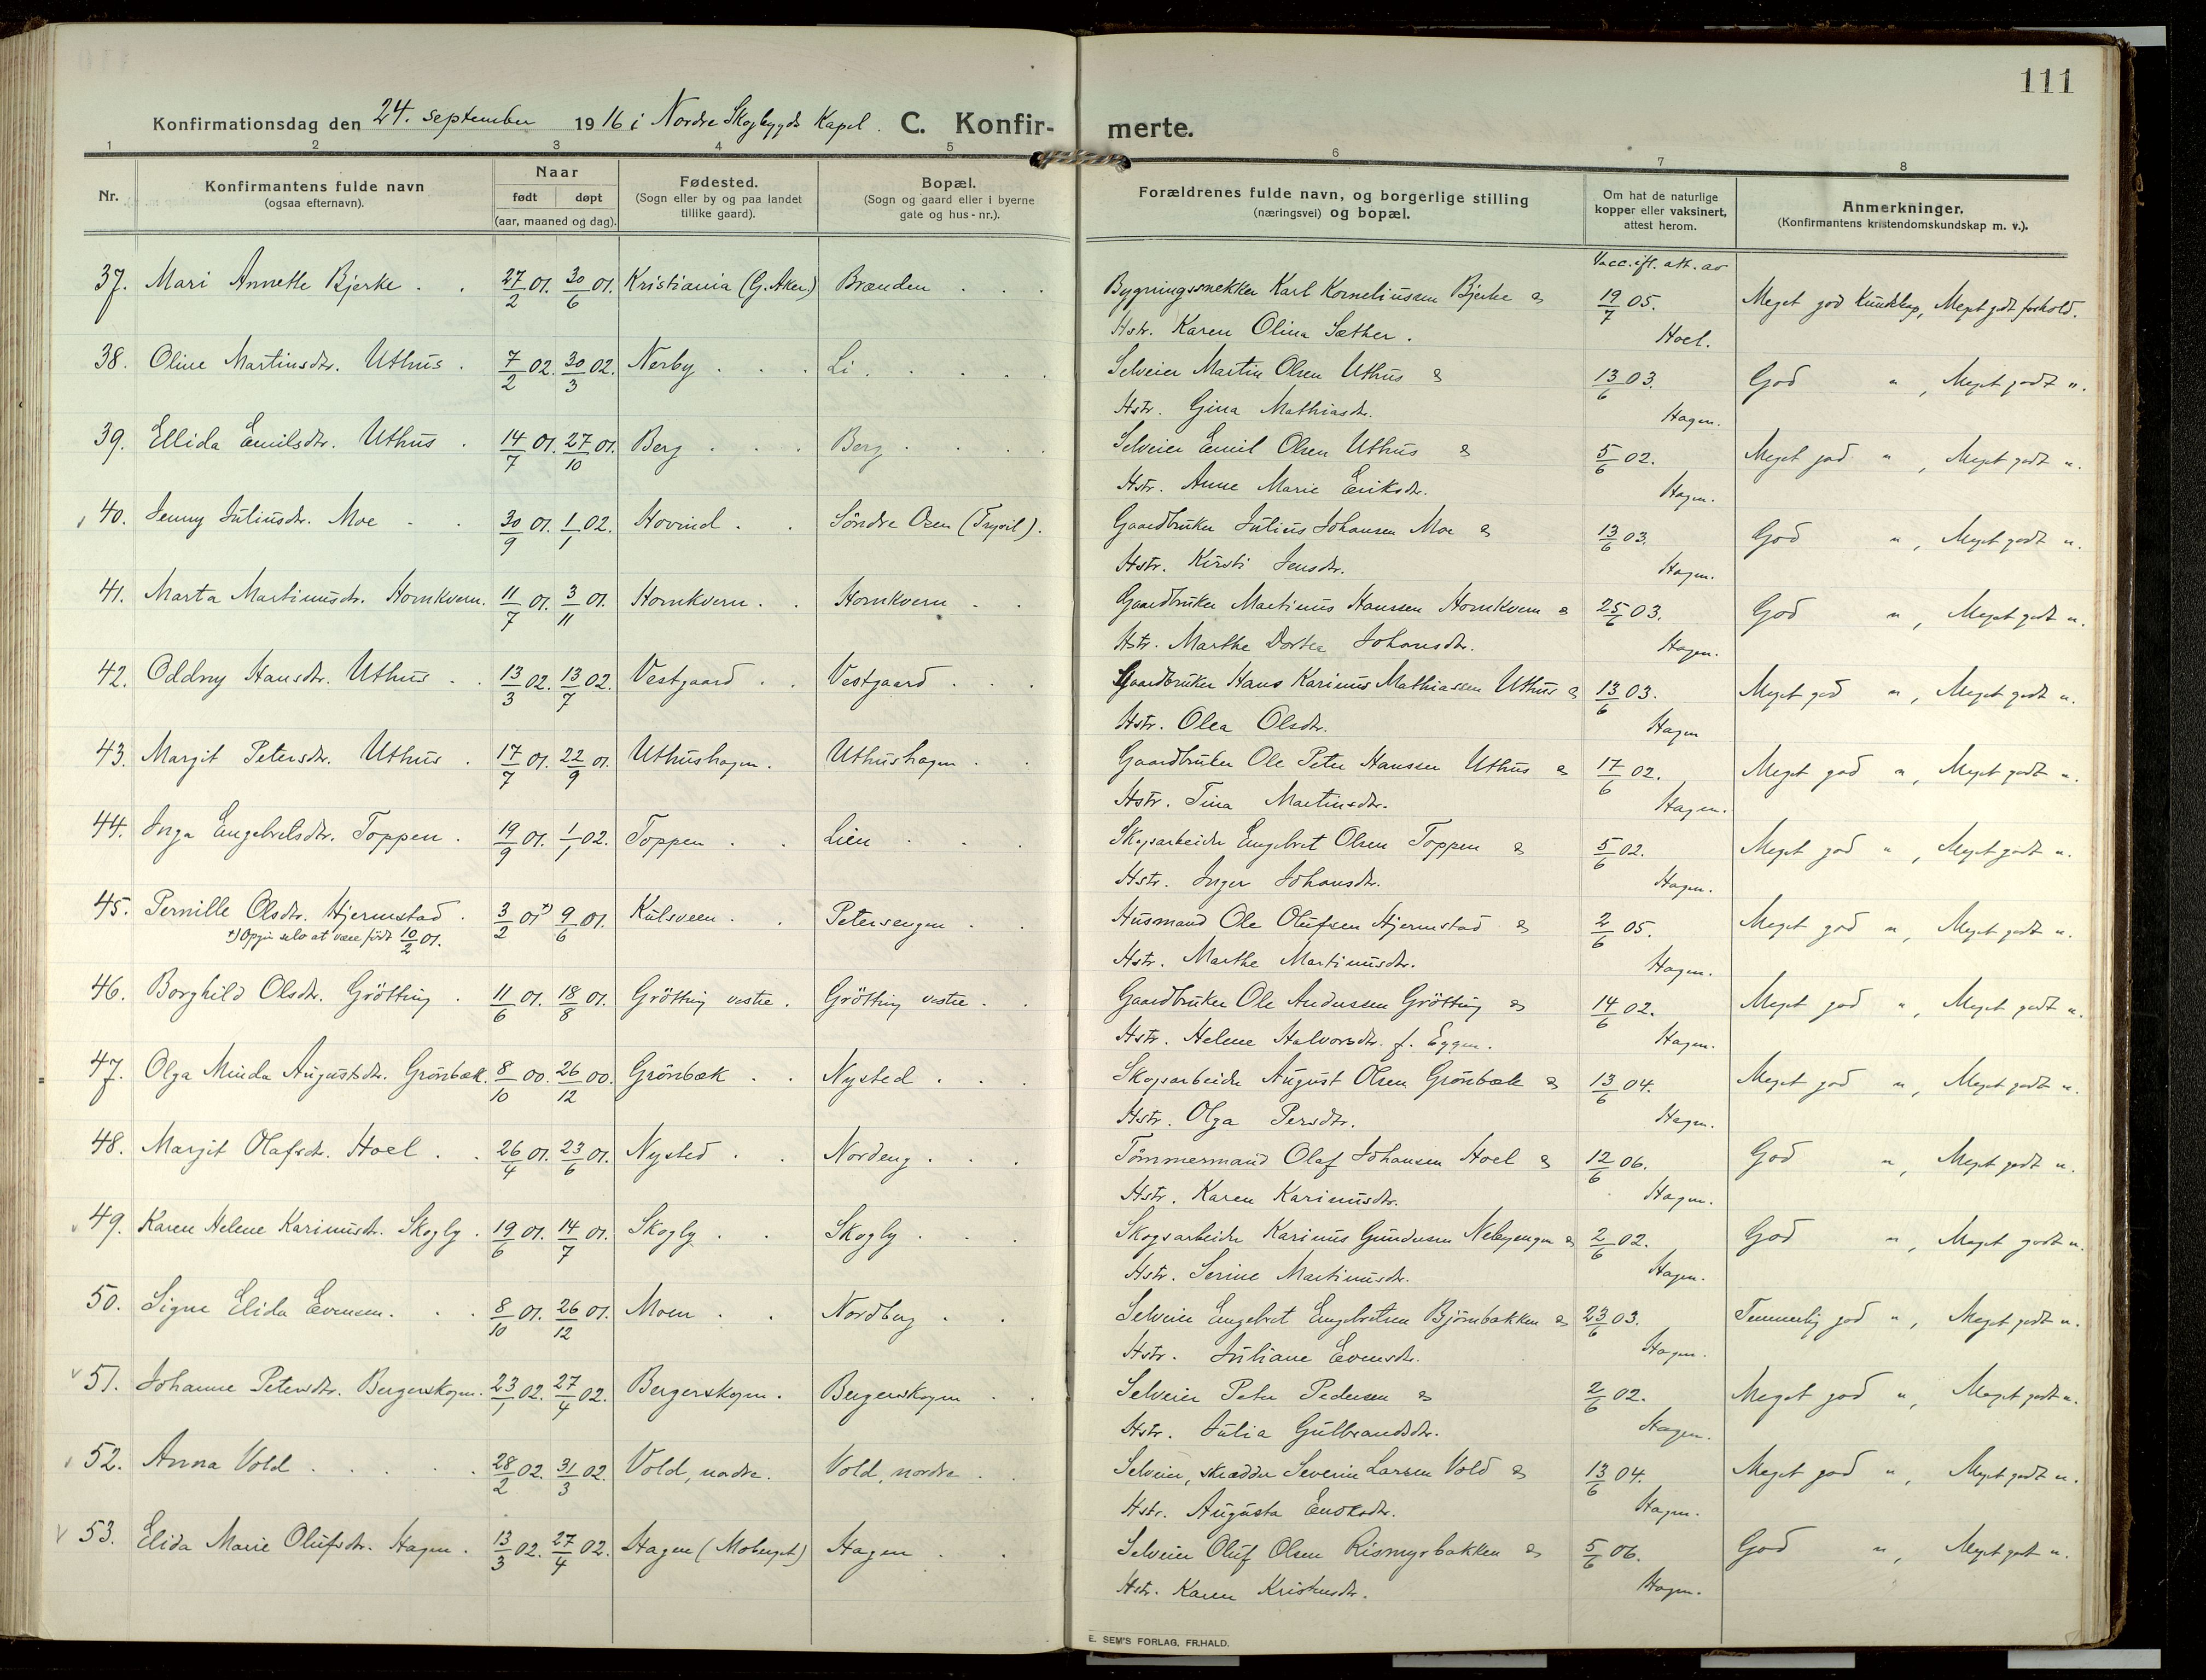 111
Konfirmationsdag den 24. september 1916 i Nordre Skogbygds Kapel. C. Konfir- merte.
1 2 3 4 5 6 7 8
Nr. Konfirmantens fulde navn (ogsaa efternavn). Naar født døpt (aar, maaned og dag). Fødested. (Sogn eller by og paa landet tillike gaard). Bopæl. (Sogn og gaard eller i byerne gate og hus-nr.). Forældrenes fulde navn, og borgerlige stilling (næringsvei) og bopæl. Om hat de naturlige kopper eller vaksinert, attest herom. Anmerkninger. (Konfirmantens kristendomskundskap m. v.).
Vacc. ifl. att. av
37. Mari Annette Bjerke. 27/2 01. 30/6 01. Kristiania (G. Aker) Brænden Bygningssnekker Karl Korneliussen Bjerke & 19/7 05. Meget god kundskap, Meget godt forhold.
Hstr. Karen Olina Sæther. Hoel.
38. Oline Martinsdtr. Uthus. 7/2 02. 30/3 02. Nerby Li Selveier Martin Olsen Uthus & 13/6 03. God ", Meget godt ".
Hstr. Gina Mathiasdtr. Hagen.
39. Ellida Emilsdtr. Uthus. 14/7 01. 27/10 01. Berg Berg Selveier Emil Olsen Uthus & 5/6 02. Meget god ", Meget godt ".
Hstr. Anne Marie Eriksdtr. Hagen.
40. Jenny Juliusdtr. Moe 30/9 01. 1/1 02. Hovind Söndre Osen (Trysil). Gaardbruker Julius Johansen Moe & 13/6 03. God ", Meget godt ".
Hstr. Kirsti Jensdtr. Hagen.
41. Marta Martinusdtr. Hornkvern. 11/7 01. 3/11 01. Hornkvern Hornkvern Gaardbruker Martinus Hanssen Hornkvern & 25/6 03. God ", Meget godt ".
Hstr. Marthe Dortea Johansdtr. Hagen.
42. Oddny Hansdtr. Uthus 13/3 02. 13/7 02. Vestgaard Vestgaard Gaardbruker Hans Karinus Mathiassen Uthus & 13/6 03. Meget god ", Meget godt ".
Hstr. Olea Olsdtr. Hagen
43. Margit Petersdtr. Uthus 17/7 01. 22/9 01. Uthushagen. Uthushagen Gaardbruker Ole Peter Hanssen Uthus & 17/6 02. Meget god ", Meget godt ".
Hstr. Tina Martinsdtr. Hagen.
44. Inga Engebretsdtr. Toppen. 19/9 01. 1/1 02. Toppen Lien Skogsarbeider Engebret Olsen Toppen & 5/6 02. Meget god ", Meget godt ".
Hstr. Inger Johansdtr. Hagen.
45. Pernille Olsdtr. Hjermstad. 3/2 01 +) 9/6 01. Kulsveen. Petersengen Husmand Ole Olufsen Hjermstad & 2/6 05. Meget god ", Meget godt ".
+) Opgir selv at være født 10/2 01. Hstr. Marthe Martinusdtr. Hagen.
46. Borghild Olsdtr. Grötting. 11/6 01. 18/8 01. Grötting vestre. Grötting vestre. Gaardbruker Ole Andersen Grötting & 14/6 02. Meget god ", Meget godt ".
Hstr. Helene Halvorsdtr. f. Eggen. Hagen.
47. Olga Minda Augustsdtr. Grönbæk. 8/10 00. 26/12 00. Grönbæk Nysted Skogsarbeider August Olsen Grönbæk & 13/6 04. Meget god ", Meget godt ".
Hstr. Olga Persdtr. Hagen.
48. Margit Olafsdtr. Hoel 26/4 01. 23/6 01. Nysted Nordeng Tömmermand Olaf Johansen Hoel & 12/6 06. God ", Meget godt ".
Hstr. Karen Karinusdtr. Hagen.
49. Karen Helene Karinusdtr. Skogly. 19/6 01. 14/7 01. Skogly Skogly Skogsarbeider Karinus Gundersen Nebyengen & 2/6 02. God ", Meget godt ".
Hstr. Serine Martinusdtr. Hagen.
50. Signe Elida Evensen. 8/10 01. 26/12 01. Moen Nordberg Selveier Engebret Engebretsen Bjørnbakken & 23/6 03. Temmelig god ", Meget godt ".
Hstr. Juliane Evensdtr. Hagen.
51. Johanne Petersdtr. Bergerskogen. 23/1 02. 27/4 02. Bergerskogen. Bergerskogen Selveier Peter Pedersen & 2/6 02. Meget god ", Meget godt ".
Hstr. Julia Gulbrandsdtr. Hagen.
52. Anna Vold 28/2 02. 31/3 02. Vold, nordre. Vold, nordre Selveier, skrædder Severin Larsen Vold & 13/6 04. Meget god ", Meget godt ".
Hstr. Augusta Enoksdtr. Hagen.
53. Elida Marie Olufsdtr. Hagen. 13/3 02. 27/4 02. Hagen (Moberget) Hagen Selveier Oluf Olsen Rismyrbakken & 5/6 06. God ", Meget godt ".
Hstr. Karen Kristensdtr. Hagen.
E. SEM'S FORLAG, FR.HALD.